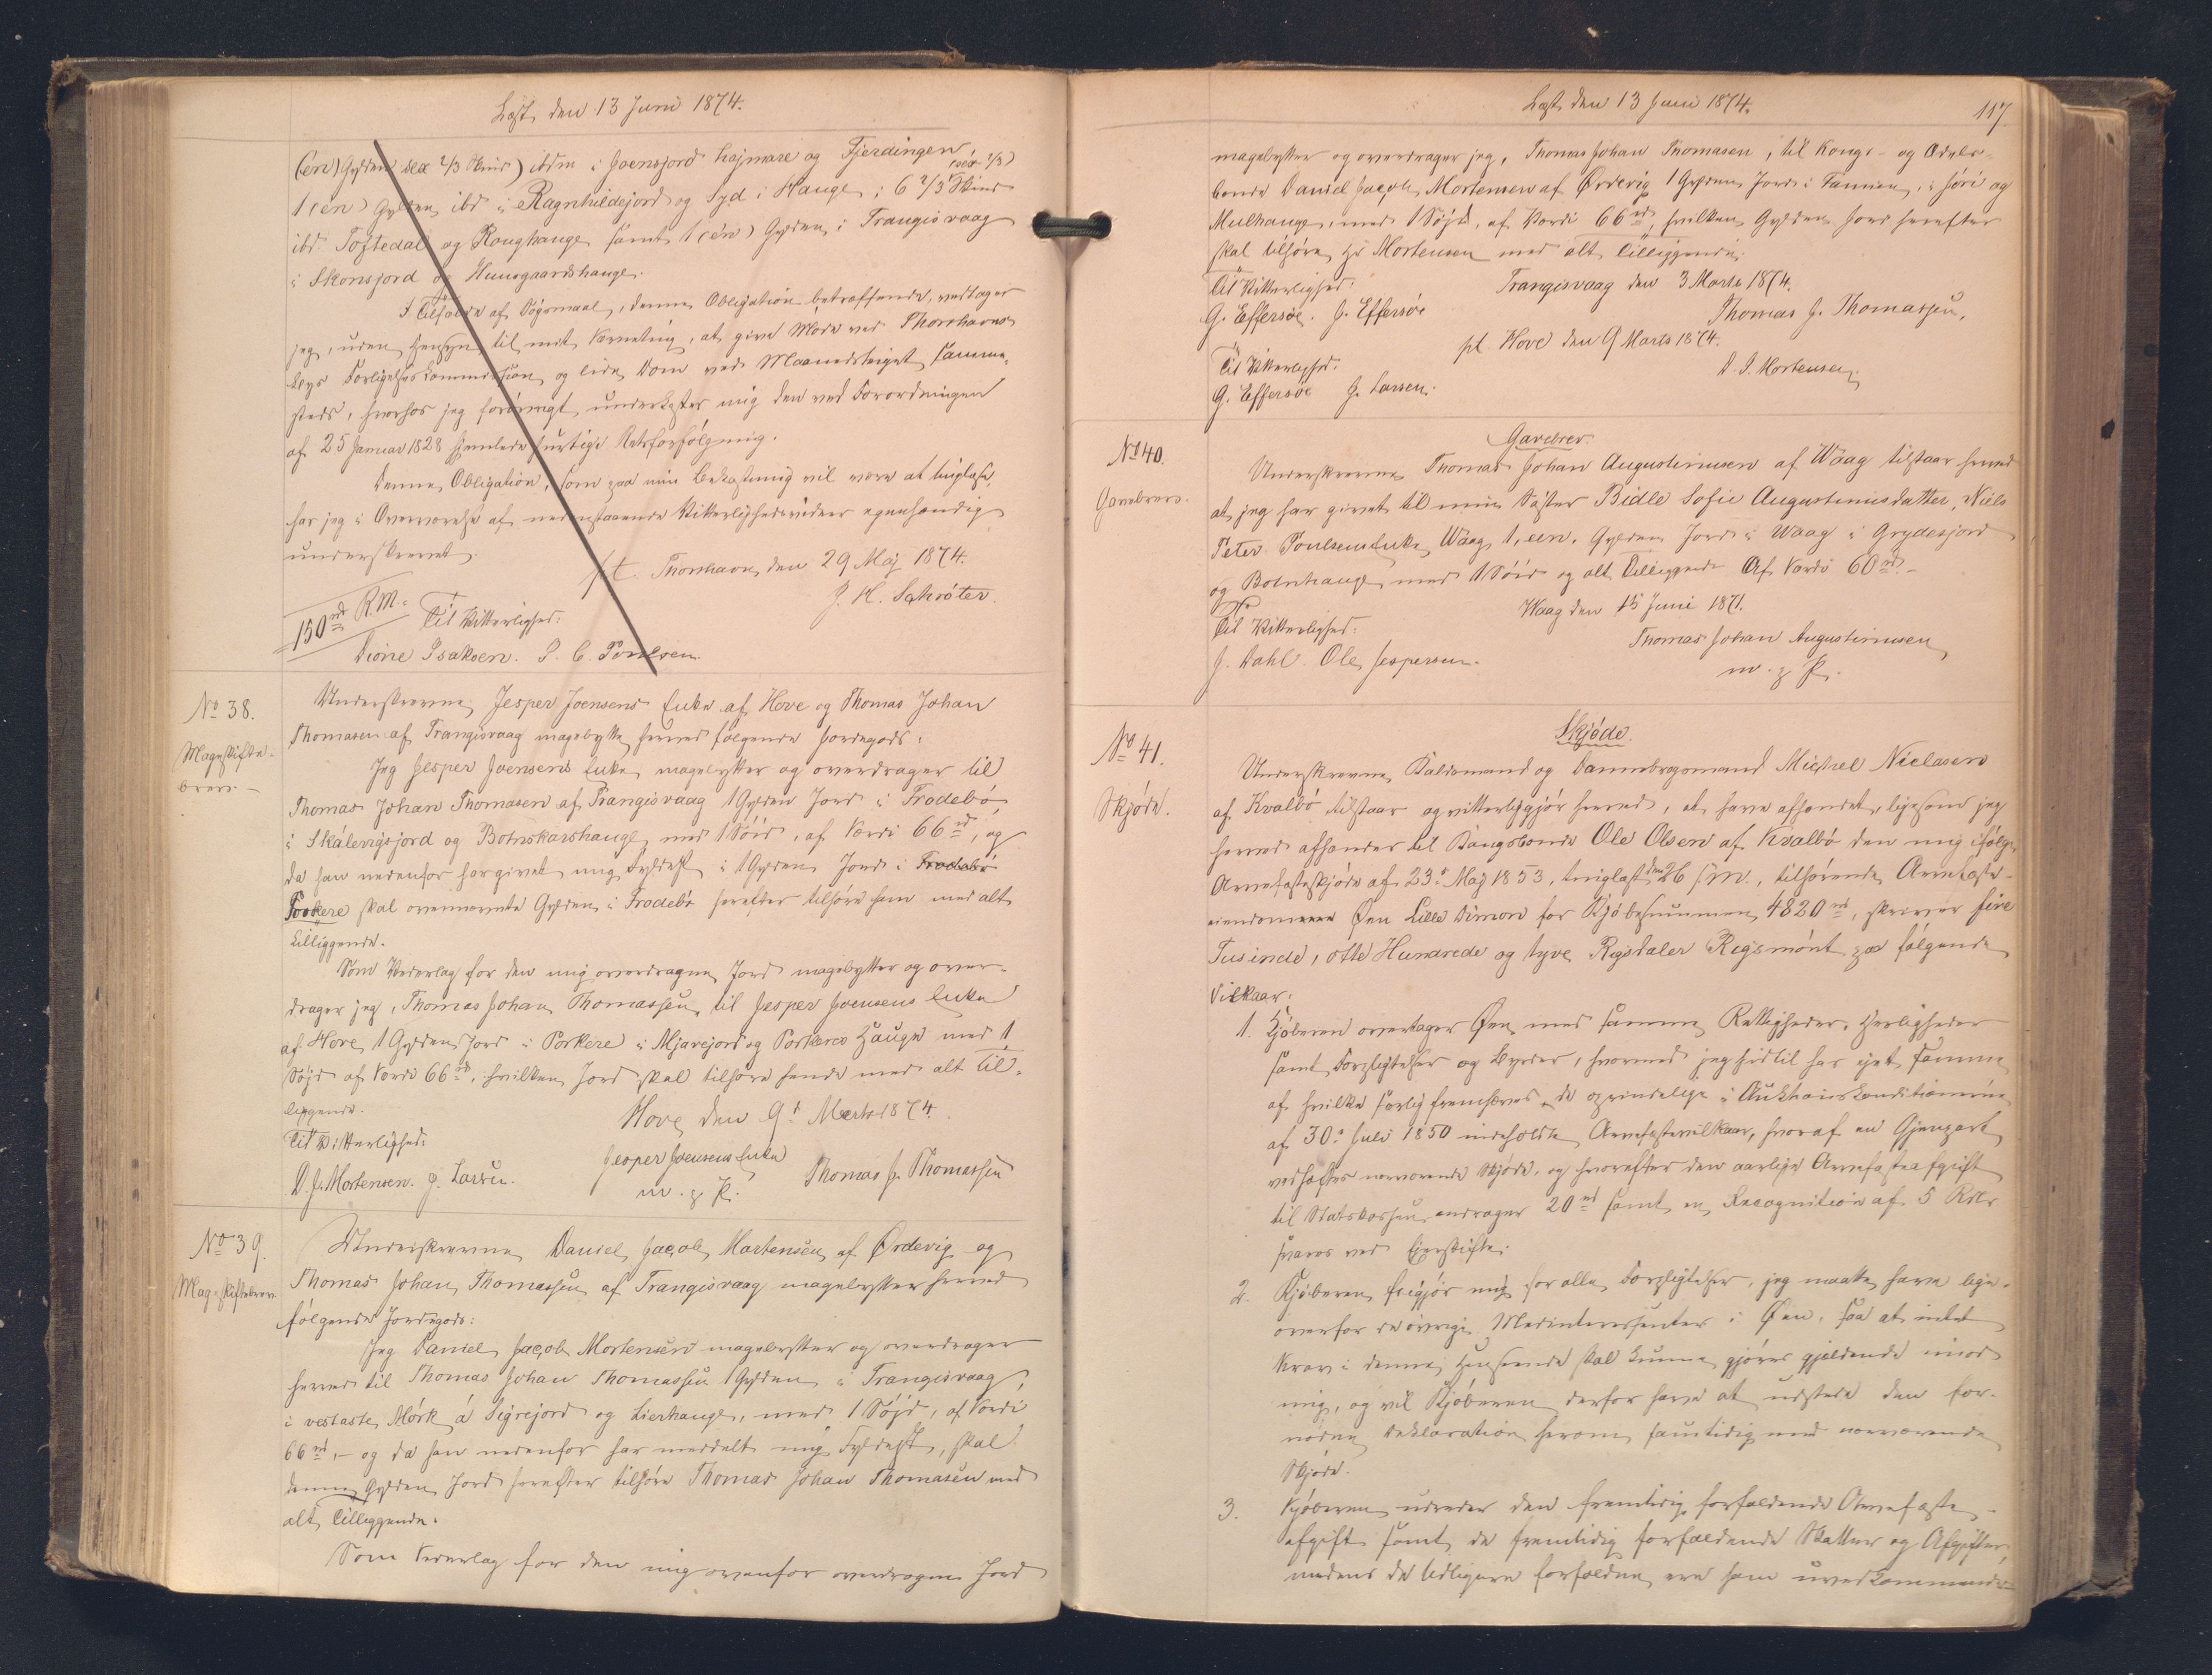 Læst den 13 Juni 1874.
(én) Gylden sex 2/3 Skind) ibdm i Joensjord højmare og Fjerdingen
(sex 2/3)
1 (én) Gylden ibd i Ragnhildejord og Syd i Hauge; 6 2/3 Skind
ibd Toftedal og Roughauge samt 1 (én) Gylden i Trangisvaag
i Skonsjord og Hunsgaardshauge.
I Tilfælde af Søgsmaal, denne Obligation betræffende, vedtager
jeg, uden Hensyn til mit Værneting, at give Møde ved Thorshavns
Forligelseskommission og lide Dom ved Maanedstinget samme-
steds, hvorhos jeg forøvrigt underkaster mig den ved Forordningen
af 25 Januar 1828 hjemlede hurtige Retsforfølgning.
Denne Obligation, som paa min Bekostning vil være at tinglæse,
har jeg i Overværelse af nedenstaaende Vitterlighedsvidner egenhændig
underskrevet.
pt. Thorshavn den 29 Maj 1874.
J. H. Schröter.
150 rd R.M. Til Vitterlighed:
Isaksen. P. C. Poulsen.
No 38.
Mageskifte-
brev. –
Underskrevne Jesper Joensens Enke af Hove og Thomas Johan
Thomasen af Trangisvaag magebytte herved følgende Jordegods:
Jeg Jesper Joensens Enke magebytter og overdrager til
Thomas Johan Thomasen af Trangisvaag 1 Gylden Jord i Frodebø
i Skálevigsjord og Botnskarshauge med 1 Søjd, af Værdi 66 rd, og
da han nedenfor har givet mig Fyldest i 1 Gylden Jord i Frodebø
Porkere skal ovennævnte Gylden i Frodebø herefter tilhøre ham med alt
Tilliggende.
Som Vederlag for den mig overdragne Jord magebytter og over-
drager jeg, Thomas Johan Thomassen, til Jesper Joensens Enke
af Hove 1 Gylden Jord i Porkere i Mjavejord og Porkeres Hauge med 1
Søjd af Værdi 66 rd, hvilken Jord skal tilhøre hende med alt Til-
liggende.
Hove den 9d Marts 1874.
Til Vitterlighed:
Jesper Joensens Enke
D. J. Mortensen. J. Larsen.
m. p. P.
Thomas J. Thomassen
No 39.
Mageskiftebrev.
Underskrevne Daniel Jacob Mortensen af Ørdevig og
Thomas Johan Thomassen af Trangisvaag magebytter herved
følgende Jordegods:
Jeg Daniel Jacob Mortensen magebytter og overdrager
herved til Thomas Johan Thomassen 1 Gylden i Trangisvaag
i vestaste Mørk á Sigrejord og Lierhauge, med 1 Søjd, af Værdi
66 rd, – og da han nedenfor har meddelt mig Fyldest, skal
denne Gylden Jord herefter tilhøre Thomas Johan Thomasen med
alt Tilliggende.
Som Vederlag for den mig ovenfor overdragne Jord
Læst den 13 Juni 1874.
117.
magebytter og overdrager jeg, Thomas Johan Thomasen, til Kongs- og Odels-
bonde Daniel Jacob Mortensen af Ørdevig 1 Gylden Jord i Famien, i Jøri og
Mulhauge, med 1 Søjd, af Værdi 66 rd, hvilken Gylden Jord herefter
skal tilhøre Hr Mortensen med alt Tilliggende.
Trangisvaag den 3 Marts 1874.
Til Vitterlighed:
G. Effersøe. J. Effersøe
Thomas J. Thomassen.
pt Hove den 9 Marts 1874.
Til Vitterlighed:
D. J. Mortensen.
G. Effersøe J. Larsen.
No 40.
Gavebrev.
Gavebrev.
Underskrevne Thomas Johan Augustinusen af Waag tilstaar herved
at jeg har givet til min Søster Bidle Sofie Augustinusdatter, Niels
Peter Poulsens Enke, Waag, 1, een, Gylden Jord i Waag i Grydesjord
og Botnhauge med 1 Söid og alt Tilliggende Af Værdi 60 rd –
Waag den 15 Juni 1871.
Til Vitterlighed:
Thomas Johan Augustinusen
J. Dahl. Ole Jespersen.
m. p. P.
No 41.
Skjøde.
Skjøde.
Underskrevne Sysselmand og Dannebrogsmand Michel Niclasen
af Kvalbø tilstaar og vitterliggjør herved, at have afhændet, ligesom jeg
herved afhænder til Kongsbonde Ole Olsen af Kvalbø den mig ifølge
Arvefæsteskjøde af 23d Maj 1853, tinglæst den 26 s. M., tilhørende Arvefæste-
eiendom Øen Lille Dimon for Kjøbesummen 4820 rd, skriver fire
Tusinde, otte Hundrede og tyve Rigsdaler Rigsmønt paa følgende
Vilkaar:
1. Kjøberen overtager Øen med samme Rettigheder, Herligheder
samt Forpligtelser og Byrder, hvormed jeg hidtil har ejet samme
af hvilke særlig fremhæves de oprindelige i Auktionskonditionerne
af 30d Juli 1850 indeholdte Arvefæstevilkaar, hvoraf en Gjenpart
vedhæftes nærværende Skjøde, og hvorefter den aarlige Arvefæsteafgift
til Statskassen andrager 20 rd samt en Recognition af 5 Rdlr
svares ved Ejerskifte.
2. Kjøberen frigjør mig for alle Forpligtelser, jeg maatte have lige-
overfor de øvrige Medinteressenter i Øen, saa at intet
Krav i denne Henseende skal kunne gjøres gjældende imod
mig, og vil Kjøberen derfor have at udstede den for-
nødne Deklaration herom samtidig med nærværende
Skjøde.
3. Kjøberen udreder den fremtidig forfaldende Arvefæste-
afgift samt de fremtidig forfaldende Skatter og Afgifter,
medens de tidligere forfaldne ere ham uvedkommende